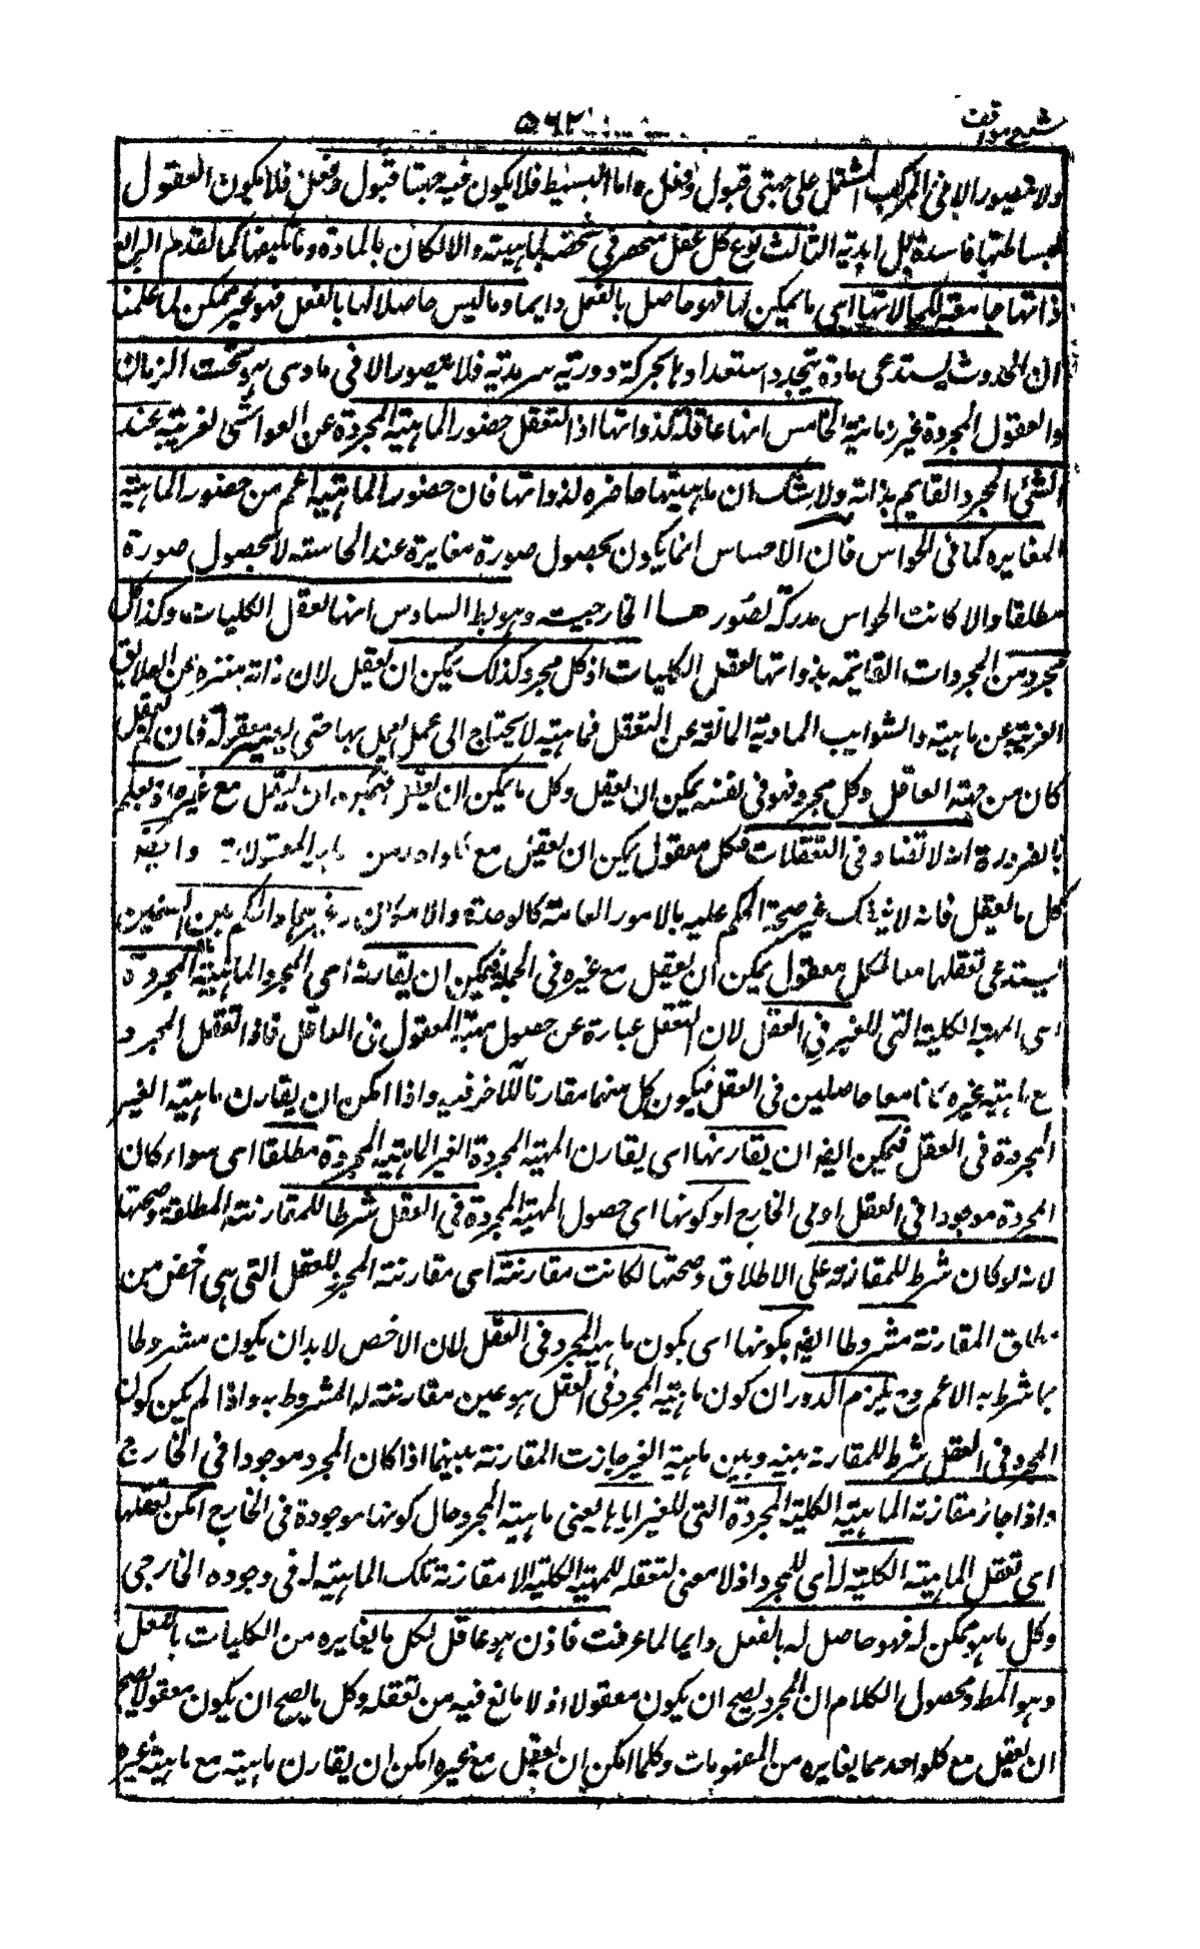 شرح مواقف
٥٦٢
ولا يتصور الا فى المركب المشتمل على جهتى قبول وفعل واما البسيط فلا يكون فيه جهتا قبول وفعل فلا يكون العقول
لبساطتها فاسدة بل ابدية الثالث نوع كل عقل منحصر فى شخصه لماهيته والا لكان بالمادة وما يكتنفها كما تقدم الرابع
ذاتها جامعة لكمالاتها اى ما يمكن لها فهو حاصل بالفعل دايما وما ليس حاصلا لها بالفعل فهو غير ممكن لما علمنا
ان الحدوث يستدعى مادة يتجدد استعدادها بحركة دورية سرمدية فلا يتصور الا فى مادى هو تحت الزمان
والعقول المجردة غير زمانية الخامس انها عاقلة لذواتها اذ التعقل حضور الماهية المجردة عن الغواشى الغريبة عند
الشئ المجرد القايم بذاته ولا شك ان ماهيتها حاضرة لذواتها فان حضور الماهية اعم من حضور الماهية
المغايرة كما فى الحواس فان الاحساس انما يكون بحصول صورة مغايرة عند الحاسته لا بحصول صورة
مطلقا والا كانت الحواس مدركة لصورها الخارجية وهو بط السادس انها تعقل الكليات وكذا كل
مجرد من المجردات القائمة بذواتها تعقل الكليات اذ كل مجرد كذلك يمكن ان يعقل لان ذاته منزه عن العلايق
الغريبة عن ماهيته والشوايب المادية المانعة عن التعقل فماهيته لا يحتاج الى عمل يعمل بها حتى يصير معقولة فان لم تعقل
كان من جهة العاقل وكل مجرد فهو فى نفسه يمكن ان يعقل وكل ما يمكن ان يعقل فيمكن ان يعقل مع غيره اذ يعلم
بالضرورة انه لا تضاد فى التعقلات فكل معقول يمكن ان يعقل مع المعقولات وايضا
كل ما يعقل فانه لا ينفك عن صحة الحكم عليه بالامور العامة كالوحدة والامكان وغيرهما والحكم بين الشيئين
يستدعى تعقلهما معا فكل معقول يمكن ان يعقل مع غيره فى الجملة فيمكن ان يقارنه اى المجرد الماهية المجردة
اى المهية الكلية التى للغير فى العقل لان التعقل عبارة عن حصول مهية المعقول فى العاقل فاذا تعقل المجرد
مع ماهية غيره كانا معا حاصلين فى العقل فيكون كل منهما مقارنا للآخر فيه واذا امكن ان يقارن ماهية الغير
المجردة فى العقل فيمكن ايضا ان يقارنها اى يقارن المهية المجردة الغير الماهية المجردة مطلقا اى سواء كان
المجردة موجودا فى العقل او فى الخارج او كونها اى حصول المهية المجردة فى العقل شرطا للمقارنة المطلقة وصحتها
لانه لو كان شرط للمقارنة على الاطلاق وصحتها لكانت مقارنته اى مقارنة المجرد للعقل التى هى اخص من
مطلق المقارنة مشروطا ايضا بكونها اى بكون ماهية المجرد فى العقل لان الاخص لابد ان يكون مشروطا
بما شرط به الاعم وح يلزم الدور ان كون ماهية المجرد فى العقل هو عين مقارنته له المشروط به واذا لم يكن كون
المجرد فى العقل شرط للمقارنة بينه وبين ماهية الغير جازت المقارنة بينهما اذا كان المجرد موجودا فى الخارج
واذا جاز مقارنة الماهية الكلية المجردة التى للغير اياها يعنى ماهية المجرد حال كونها موجودة فى الخارج امكن تعقلها
اى تعقل الماهية الكلية له اى للمجرد اذ لا معنى لتعقله للمهية الكلية الا مقارنة تلك الماهية له فى وجوده الخارجى
وكل ما هو ممكن له فهو حاصل له بالفعل دايما لما عرفت فاذن هو عاقل لكل ما يغايره من الكليات بالفعل
وهو المط ومحصول الكلام ان المجرد يصح ان يكون معقولا اذ لا مانع فيه من تعقله وكل ما يصح ان يكون معقولا يصح
ان يعقل مع كل واحد مما يغايره من المفهومات وكلما امكن ان يعقل مع غيره امكن ان يقارن ماهيته مع ماهية غيره